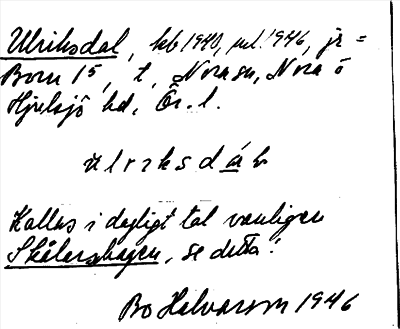 Ulriksdal, kb 1940, uel. 1946, jr =
Born 15, t, Nora sn, Nora o
Hjulsjö hd, Ör. l.
ulrıksdáł
Kallas i dagligt tal vanligen
Skålershagen, se detta!
Bo Halvarson 1946